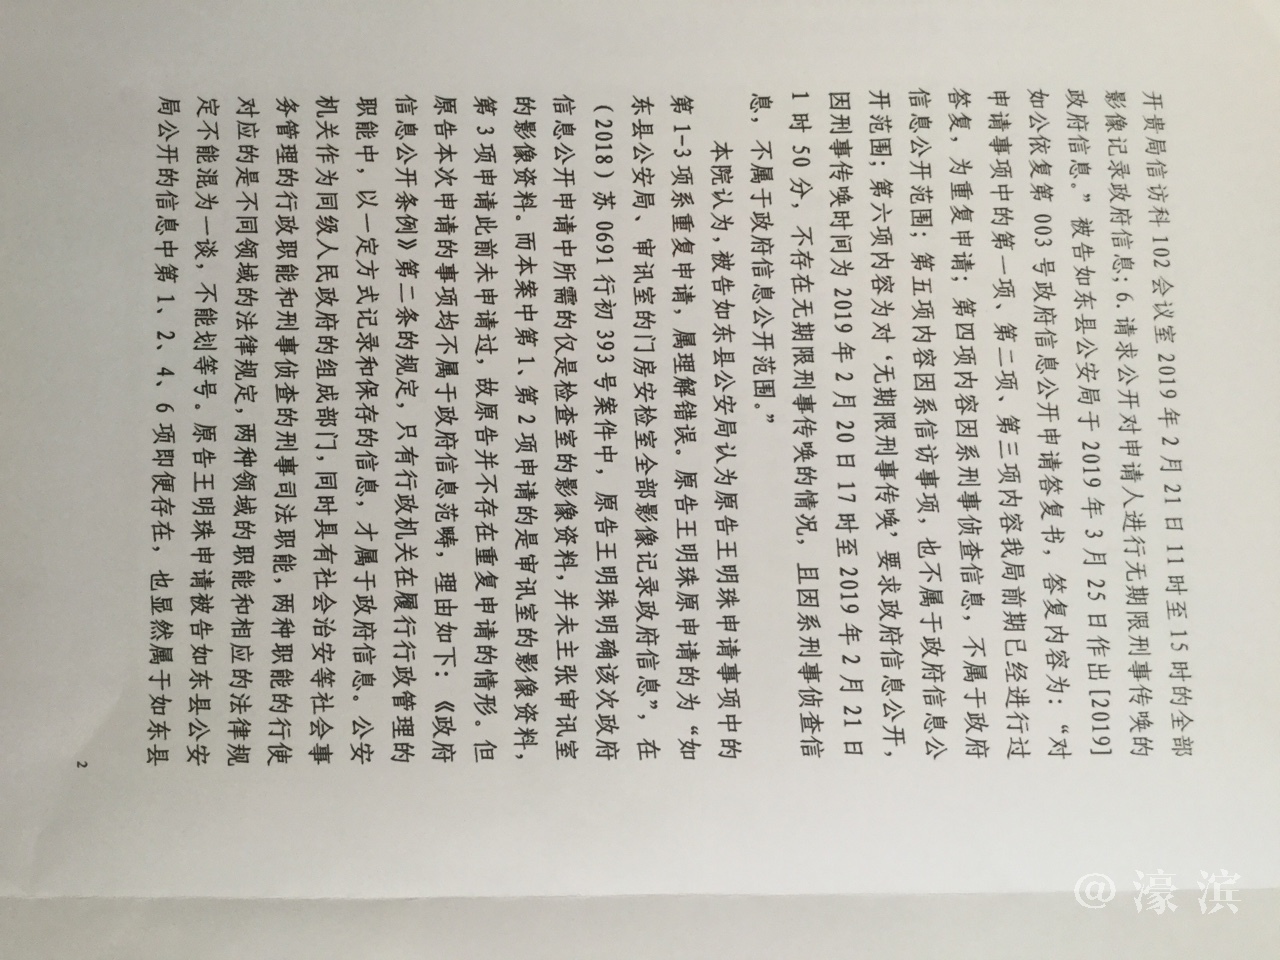 开贵局信访科 102 会议室 2019 年 2 月 21 日 11 时至 15 时的全部
影像记录政府信息；6.请求公开对申请人进行无期限刑事传唤的
政府信息。”被告如东县公安局于 2019 年 3 月 25 日作出[2019]
如公依复第 003 号政府信息公开申请答复书，答复内容为：“对
申请事项中的第一项、第二项、第三项内容我局前期已经进行过
答复，为重复申请；第四项内容因系刑事侦查信息，不属于政府
信息公开范围；第五项内容因系信访事项，也不属于政府信息公
开范围；第六项内容为对‘无期限刑事传唤，要求政府信息公开，
因刑事传唤时间为 2019 年 2 月 20 日 17 时至 2019 年 2 月 21 日
1 时 50 分，不存在无期限刑事传唤的情况，且因系刑事侦查信
息，不属于政府信息公开范围。”
本院认为，被告如东县公安局认为原告王明珠申请事项中的
第 1-3 项系重复申请，属理解错误。原告王明珠原申请的为“如
东县公安局、审讯室的门房安检室全部影像记录政府信息”，在
（2018）苏 0691 行初 393 号案件中，原告王明珠明确该次政府
信息公开申请中所需的仅是检查室的影像资料，并未主张审讯室
的影像资料。而本案中第 1、第 2 项申请的是审讯室的影像资料，
第 3 项申请此前未申请过，故原告并不存在重复申请的情形。但
原告本次申请的事项均不属于政府信息范畴，理由如下：《政府
信息公开条例》第二条的规定，只有行政机关在履行行政管理的
职能中，以一定方式记录和保存的信息，才属于政府信息。公安
机关作为同级人民政府的组成部门，同时具有社会治安等社会事
务管理的行政职能和刑事侦查的刑事司法职能，两种职能的行使
对应的是不同领域的法律规定，两种领域的职能和相应的法律规
定不能混为一谈，不能划等号。原告王明珠申请被告如东县公安
局公开的信息中第 1、2、4、6 项即便存在，也显然属于如东县
2
@濠滨